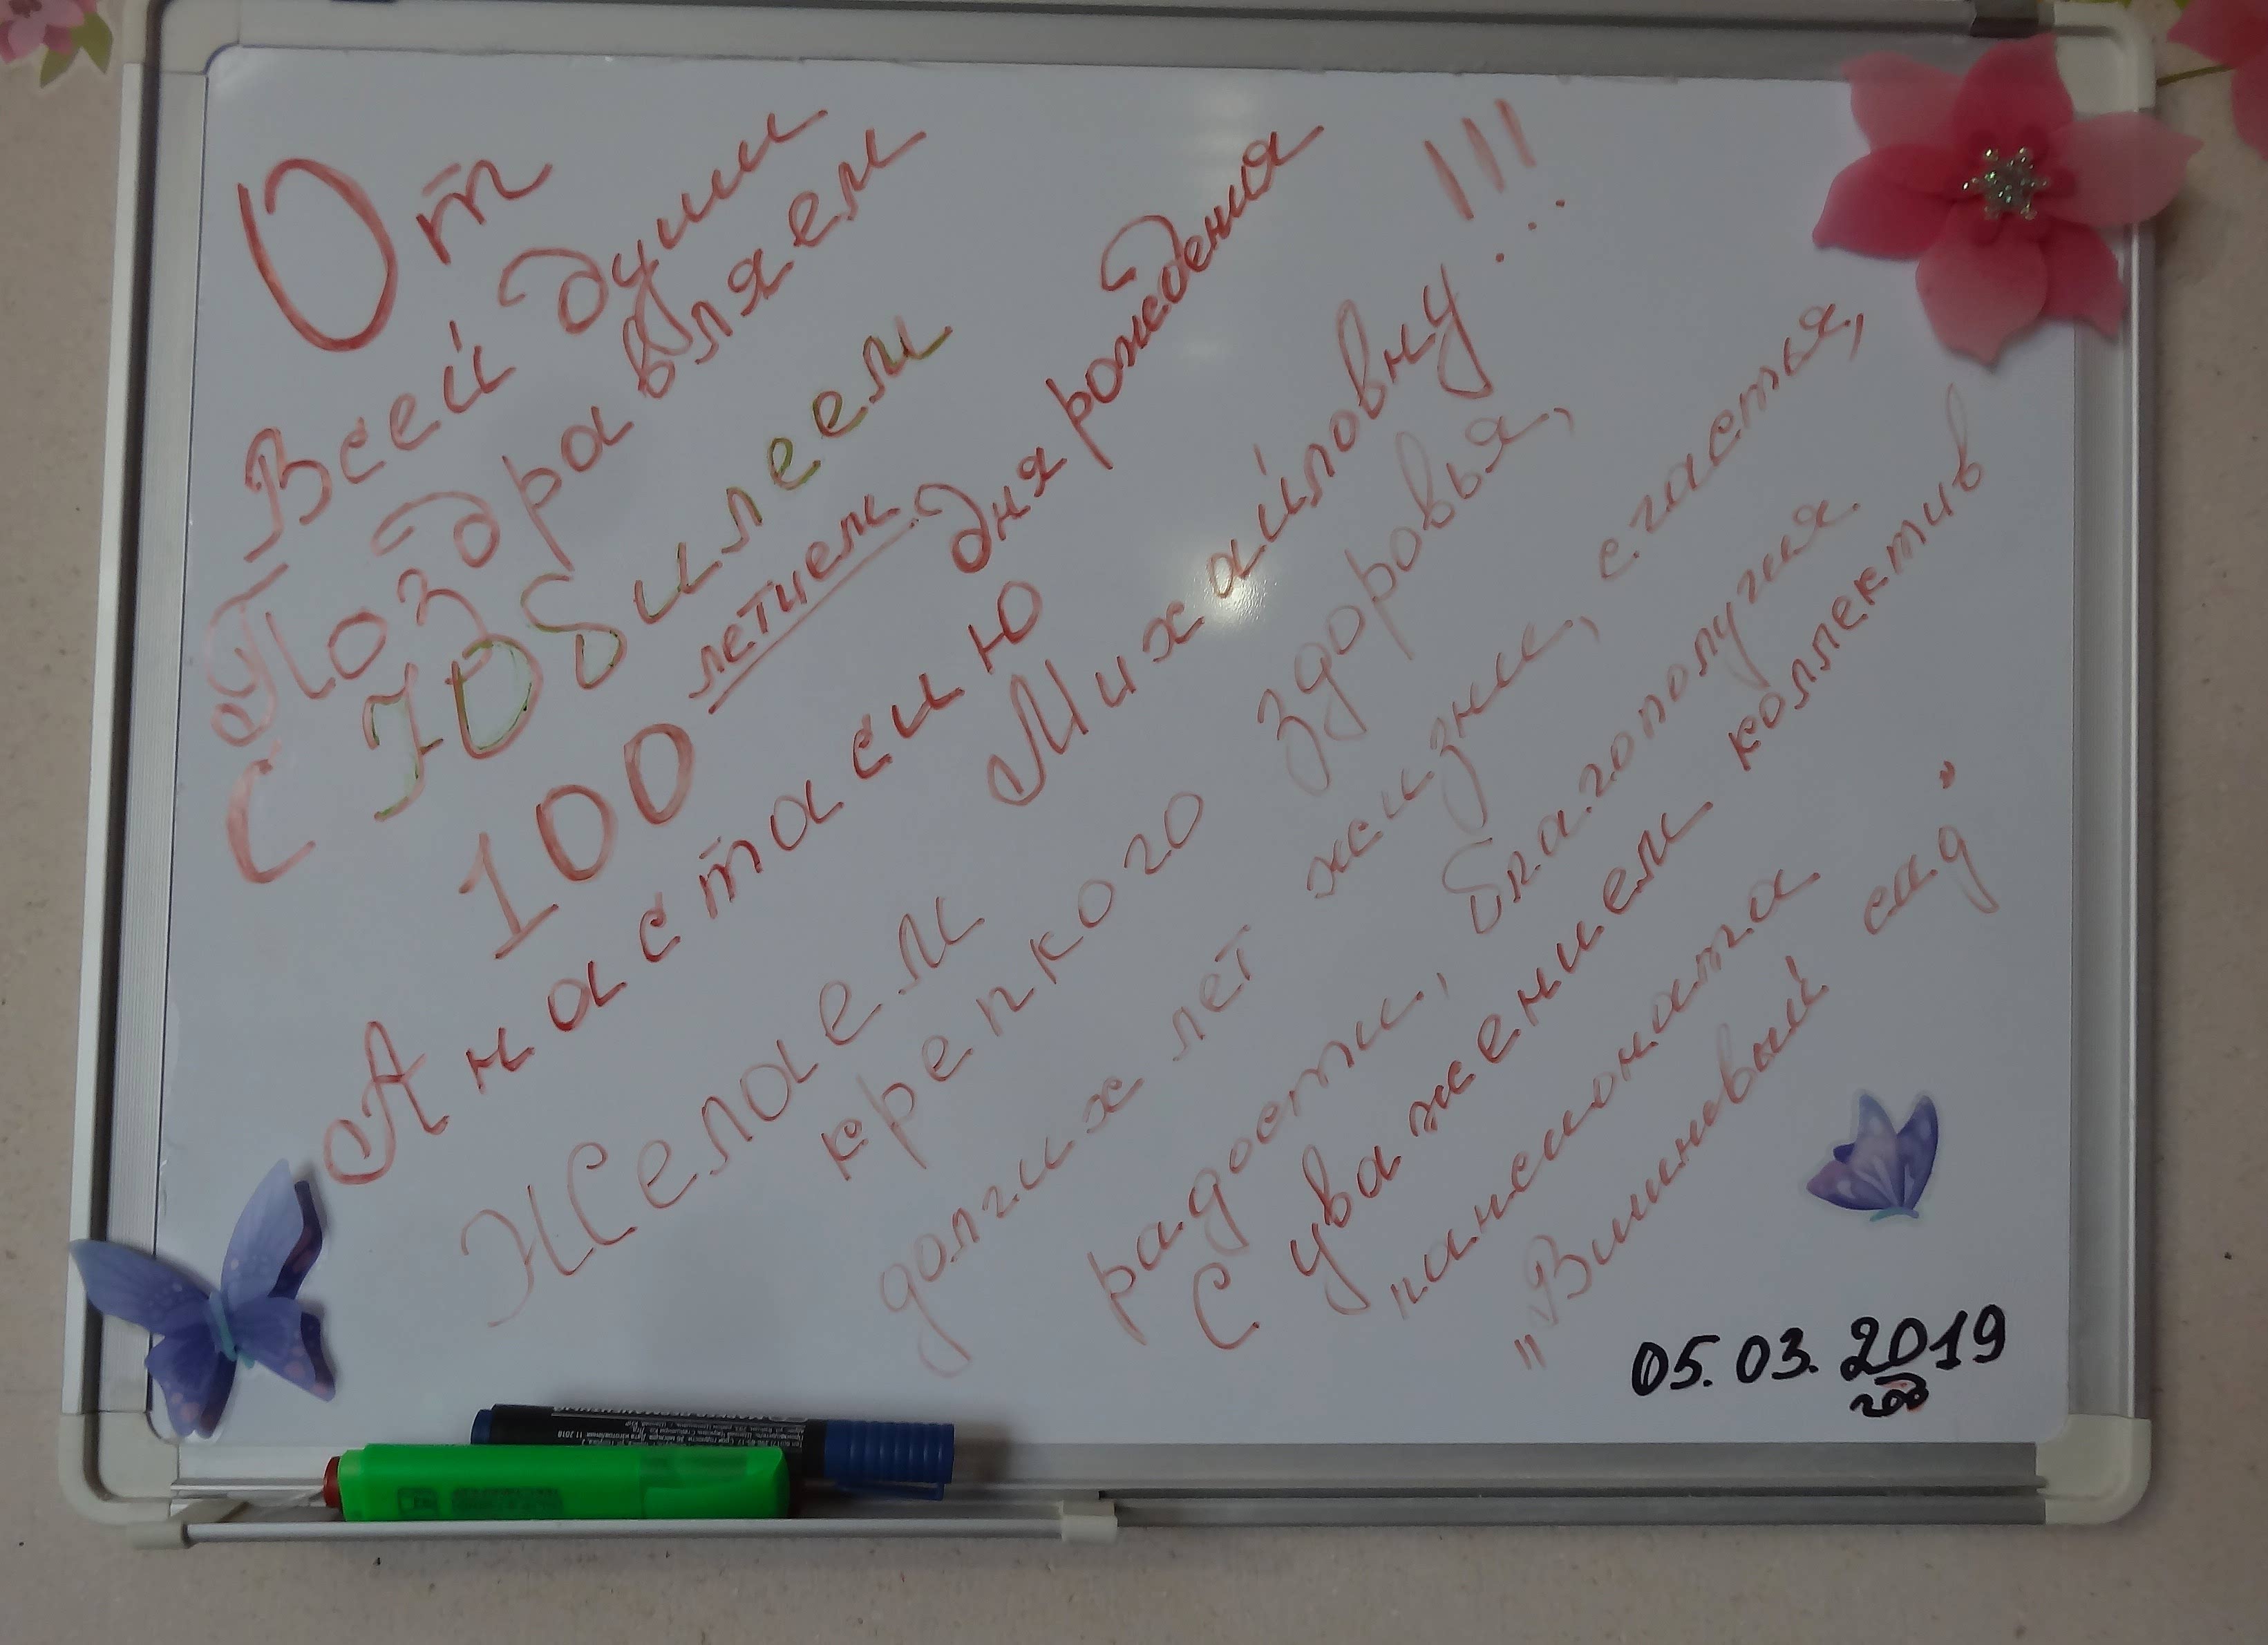 От
Всей души
Поздравляем
С Юбилеем
100 летием дня рождения
Анастасию Михайловну!!!
Желаем
крепкого здоровья,
долгих лет жизни, счастья,
радости, благополучия.
С уважением коллектив
пансионата
"Вишневый сад"
05.03.2019